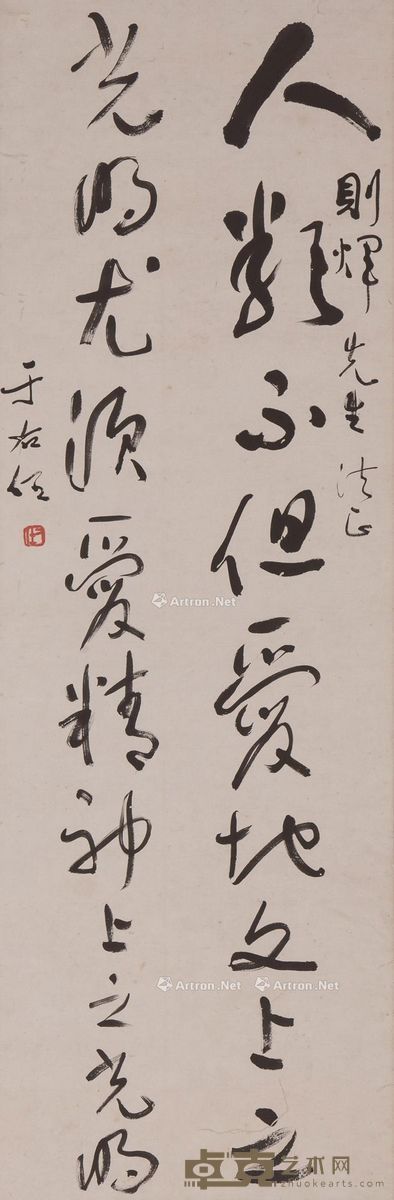 則煇先生法正
人類不但愛地文上之
光明尤須愛精神上之光明
于右任
Artron.Net
Artron.Net
Artron.Net
Artron.Net
卓克艺术网
www.zhuokearts.com